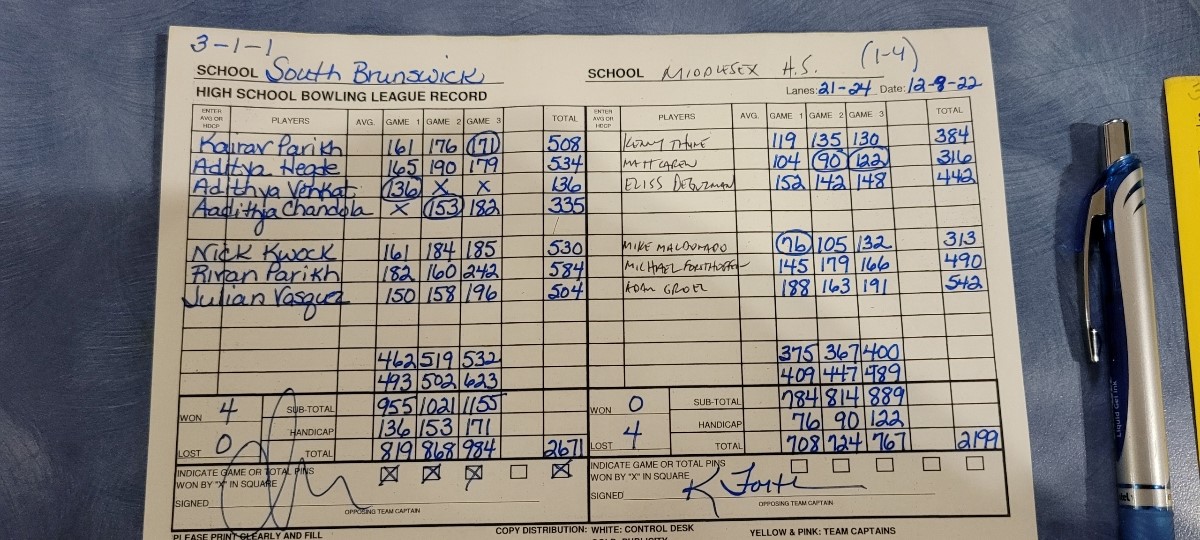 3-1-1
SCHOOL South Brunswick
HIGH SCHOOL BOWLING LEAGUE RECORD
ENTER AVG OR HDCP PLAYERS AVG. GAME 1 GAME 2 GAME 3 TOTAL
Kairav Parikh 161 176 171 508
Aditya Hegde 165 190 179 534
Adithya Venkat 136 X X 136
Aadithja Chandola X 153 182 335
Nick Kwock 161 184 185 530
Rivan Parikh 182 160 242 584
Julian Vasquez 150 158 196 504
462 519 532
493 502 623
WON 4 SUB-TOTAL 955 1021 1155
HANDICAP 136 153 171
LOST 0 TOTAL 819 868 984 2671
INDICATE GAME OR TOTAL PINS
WON BY "X" IN SQUARE X X X X
SIGNED
OPPOSING TEAM CAPTAIN
PLEASE PRINT CLEARLY AND FILL
SCHOOL MIDDLESEX H.S. (1-4)
Lanes: 21-24 Date: 12-8-22
ENTER AVG OR HDCP PLAYERS AVG. GAME 1 GAME 2 GAME 3 TOTAL
KENNY 119 135 130 384
MATT CAREW 104 90 122 316
ELISS DEGUZMAN 152 142 148 442
MIKE MALDONADO 76 105 132 313
MICHAEL FORSTHOFFER 145 179 166 490
ADAM GROEL 188 163 191 542
375 367 400
409 447 489
WON 0 SUB-TOTAL 784 814 889
HANDICAP 76 90 122
LOST 4 TOTAL 708 724 767 2199
INDICATE GAME OR TOTAL PINS
WON BY "X" IN SQUARE
SIGNED
OPPOSING TEAM CAPTAIN
COPY DISTRIBUTION: WHITE: CONTROL DESK YELLOW & PINK: TEAM CAPTAINS
Liquid Gel Ink